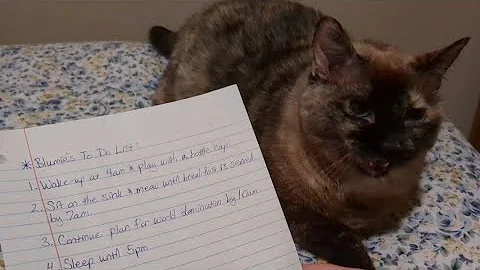 * Blumie's To Do List:
1. Wake up at 4am & play with a bottle cap
2. Sit on the sink & meow until breakfast is served
by 7am.
3. Continue plan for world domination by 10am
4. Sleep until 5pm